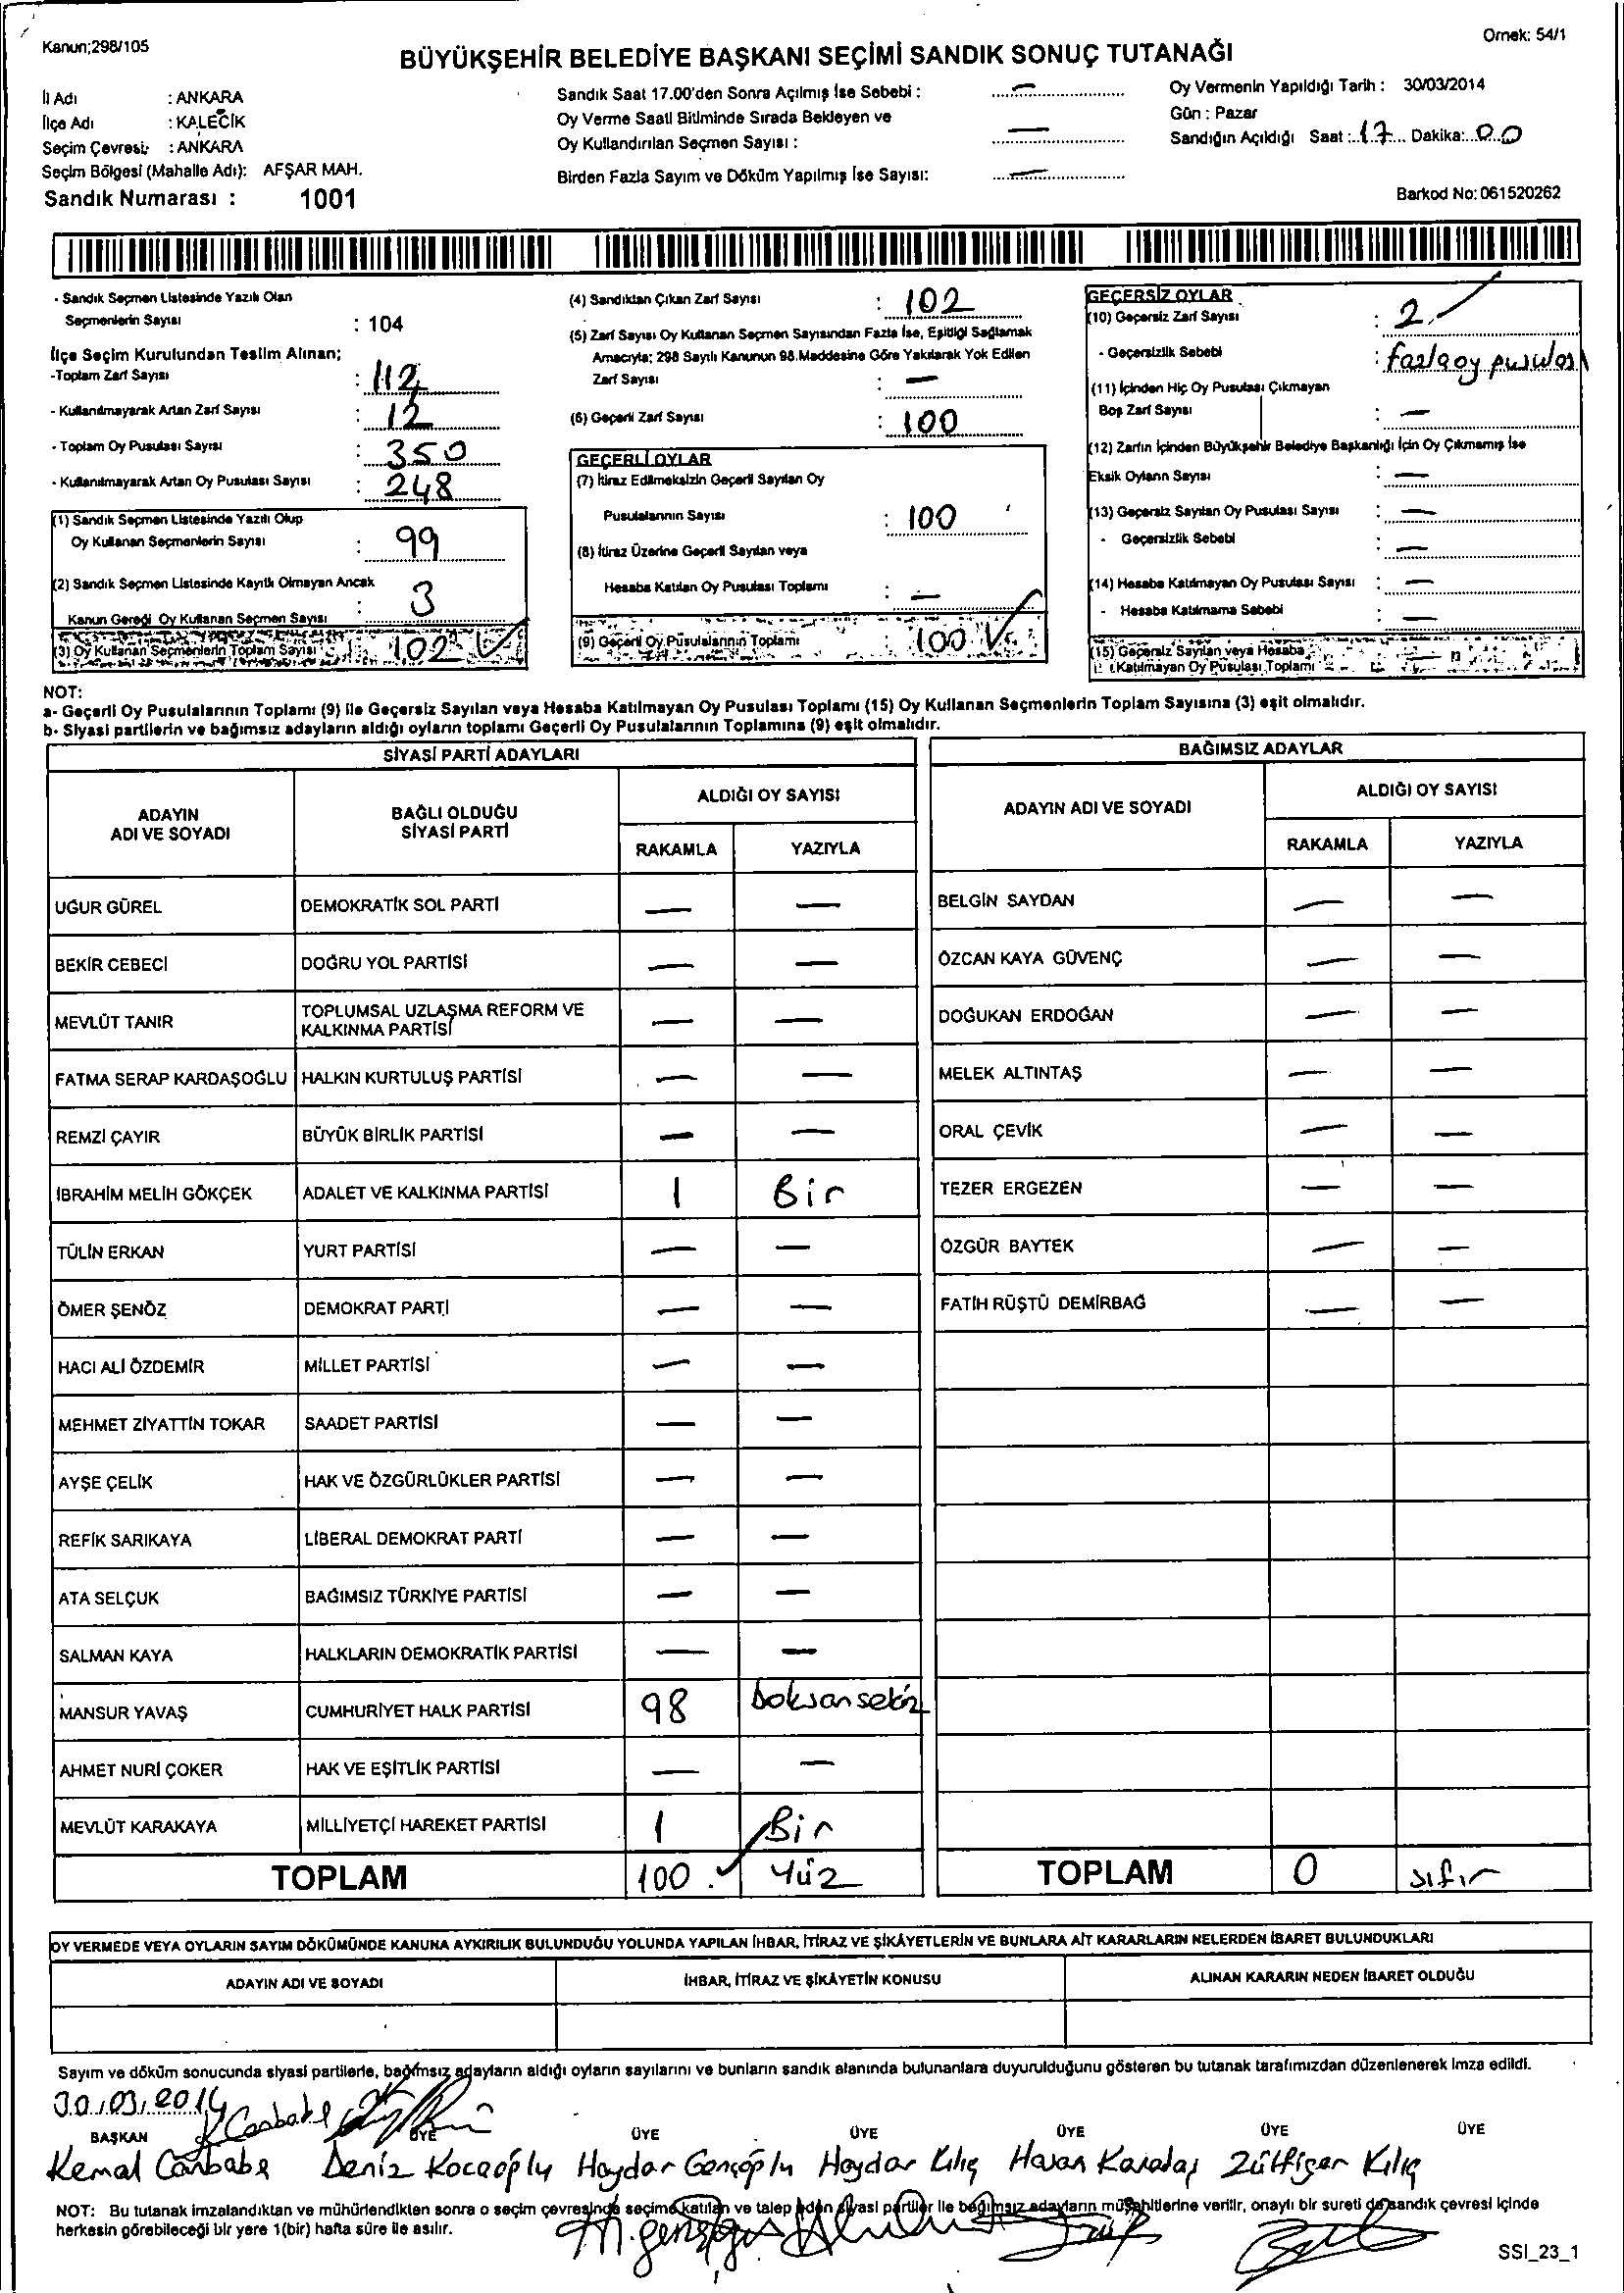 Kanun;298/105
Örnek: 54/1
BÜYÜKŞEHİR BELEDİYE BAŞKANI SEÇİMİ SANDIK SONUÇ TUTANAĞI
İl Adı : ANKARA
İlçe Adı : KALECİK
Seçim Çevresi: : ANKARA
Seçim Bölgesi (Mahalle Adı): AFŞAR MAH.
Sandık Numarası : 1001
Sandık Saat 17.00'den Sonra Açılmış İse Sebebi : —
Oy Verme Saati Bitiminde Sırada Bekleyen ve
Oy Kullandırılan Seçmen Sayısı : —
Birden Fazla Sayım ve Döküm Yapılmış İse Sayısı: —
Oy Vermenin Yapıldığı Tarih : 30/03/2014
Gün : Pazar
Sandığın Açıldığı Saat : 17 Dakika: 00
Barkod No: 061520262
- Sandık Seçmen Listesinde Yazılı Olan
Seçmenlerin Sayısı : 104
İlçe Seçim Kurulundan Teslim Alınan;
-Toplam Zarf Sayısı : 112
- Kullanılmayarak Artan Zarf Sayısı : 12
- Toplam Oy Pusulası Sayısı : 350
- Kullanılmayarak Artan Oy Pusulası Sayısı : 248
(1) Sandık Seçmen Listesinde Yazılı Olup
Oy Kullanan Seçmenlerin Sayısı : 99
(2) Sandık Seçmen Listesinde Kayıtlı Olmayan Ancak
Kanun Gereği Oy Kullanan Seçmen Sayısı : 3
(3) Oy Kullanan Seçmenlerin Toplam Sayısı : 102
(4) Sandıktan Çıkan Zarf Sayısı : 102
(5) Zarf Sayısı Oy Kullanan Seçmen Sayısından Fazla İse, Eşitliği Sağlamak
Amacıyla; 298 Sayılı Kanunun 98.Maddesine Göre Yakılarak Yok Edilen
Zarf Sayısı : —
(6) Geçerli Zarf Sayısı : 100
GEÇERLİ OYLAR
(7) İtiraz Edilmeksizin Geçerli Sayılan Oy
Pusulalarının Sayısı : 100
(8) İtiraz Üzerine Geçerli Sayılan veya
Hesaba Katılan Oy Pusulası Toplamı : —
(9) Geçerli Oy Pusulalarının Toplamı : 100
GEÇERSİZ OYLAR
(10) Geçersiz Zarf Sayısı : 2
- Geçersizlik Sebebi : fazla oy pusulası
(11) İçinden Hiç Oy Pusulası Çıkmayan
Boş Zarf Sayısı : —
(12) Zarfın İçinden Büyükşehir Belediye Başkanlığı İçin Oy Çıkmamış İse
Eksik Oyların Sayısı : —
(13) Geçersiz Sayılan Oy Pusulası Sayısı : —
- Geçersizlik Sebebi : —
(14) Hesaba Katılmayan Oy Pusulası Sayısı : —
- Hesaba Katılmama Sebebi : —
(15) Geçersiz Sayılan veya Hesaba
Katılmayan Oy Pusulası Toplamı : —
NOT:
a- Geçerli Oy Pusulalarının Toplamı (9) ile Geçersiz Sayılan veya Hesaba Katılmayan Oy Pusulası Toplamı (15) Oy Kullanan Seçmenlerin Toplam Sayısına (3) eşit olmalıdır.
b- Siyasi partilerin ve bağımsız adayların aldığı oyların toplamı Geçerli Oy Pusulalarının Toplamına (9) eşit olmalıdır.
SİYASİ PARTİ ADAYLARI
ADAYIN ADI VE SOYADI BAĞLI OLDUĞU SİYASİ PARTİ ALDIĞI OY SAYISI
RAKAMLA YAZIYLA
UĞUR GÜREL DEMOKRATİK SOL PARTİ — —
BEKİR CEBECİ DOĞRU YOL PARTİSİ — —
MEVLÜT TANIR TOPLUMSAL UZLAŞMA REFORM VE KALKINMA PARTİSİ — —
FATMA SERAP KARDAŞOĞLU HALKIN KURTULUŞ PARTİSİ — —
REMZİ ÇAYIR BÜYÜK BİRLİK PARTİSİ — —
İBRAHİM MELİH GÖKÇEK ADALET VE KALKINMA PARTİSİ 1 Bir
TÜLİN ERKAN YURT PARTİSİ — —
ÖMER ŞENÖZ DEMOKRAT PARTİ — —
HACI ALİ ÖZDEMİR MİLLET PARTİSİ — —
MEHMET ZİYATTİN TOKAR SAADET PARTİSİ — —
AYŞE ÇELİK HAK VE ÖZGÜRLÜKLER PARTİSİ — —
REFİK SARIKAYA LİBERAL DEMOKRAT PARTİ — —
ATA SELÇUK BAĞIMSIZ TÜRKİYE PARTİSİ — —
SALMAN KAYA HALKLARIN DEMOKRATİK PARTİSİ — —
MANSUR YAVAŞ CUMHURİYET HALK PARTİSİ 98 Doksan sekiz
AHMET NURİ ÇOKER HAK VE EŞİTLİK PARTİSİ — —
MEVLÜT KARAKAYA MİLLİYETÇİ HAREKET PARTİSİ 1 Bir
TOPLAM 100 Yüz
BAĞIMSIZ ADAYLAR
ADAYIN ADI VE SOYADI ALDIĞI OY SAYISI
RAKAMLA YAZIYLA
BELGİN SAYDAN — —
ÖZCAN KAYA GÜVENÇ — —
DOĞUKAN ERDOĞAN — —
MELEK ALTINTAŞ — —
ORAL ÇEVİK — —
TEZER ERGEZEN — —
ÖZGÜR BAYTEK — —
FATİH RÜŞTÜ DEMİRBAĞ — —
TOPLAM 0 sıfır
OY VERMEDE VEYA OYLARIN SAYIM DÖKÜMÜNDE KANUNA AYKIRILIK BULUNDUĞU YOLUNDA YAPILAN İHBAR, İTİRAZ VE ŞİKÂYETLERİN VE BUNLARA AİT KARARLARIN NELERDEN İBARET BULUNDUKLARI
ADAYIN ADI VE SOYADI İHBAR, İTİRAZ VE ŞİKÂYETİN KONUSU ALINAN KARARIN NEDEN İBARET OLDUĞU
Sayım ve döküm sonucunda siyasi partilerle, bağımsız adayların aldığı oyların sayılarını ve bunların sandık alanında bulunanlara duyurulduğunu gösteren bu tutanak tarafımızdan düzenlenerek imza edildi.
30.03.2014
BAŞKAN ÜYE ÜYE ÜYE ÜYE ÜYE ÜYE
Kemal Canbaba Deniz Kocaoğlu Haydar Gençoğlu Haydar Kılıç Hasan Karadaş Zülfigar Kılıç
NOT: Bu tutanak imzalandıktan ve mühürlendikten sonra o seçim çevresinde seçime katılan ve talep eden siyasi partiler ile bağımsız adayların müşahitlerine verilir, onaylı bir sureti de sandık çevresi içinde
herkesin görebileceği bir yere 1(bir) hafta süre ile asılır.
SSI_23_1